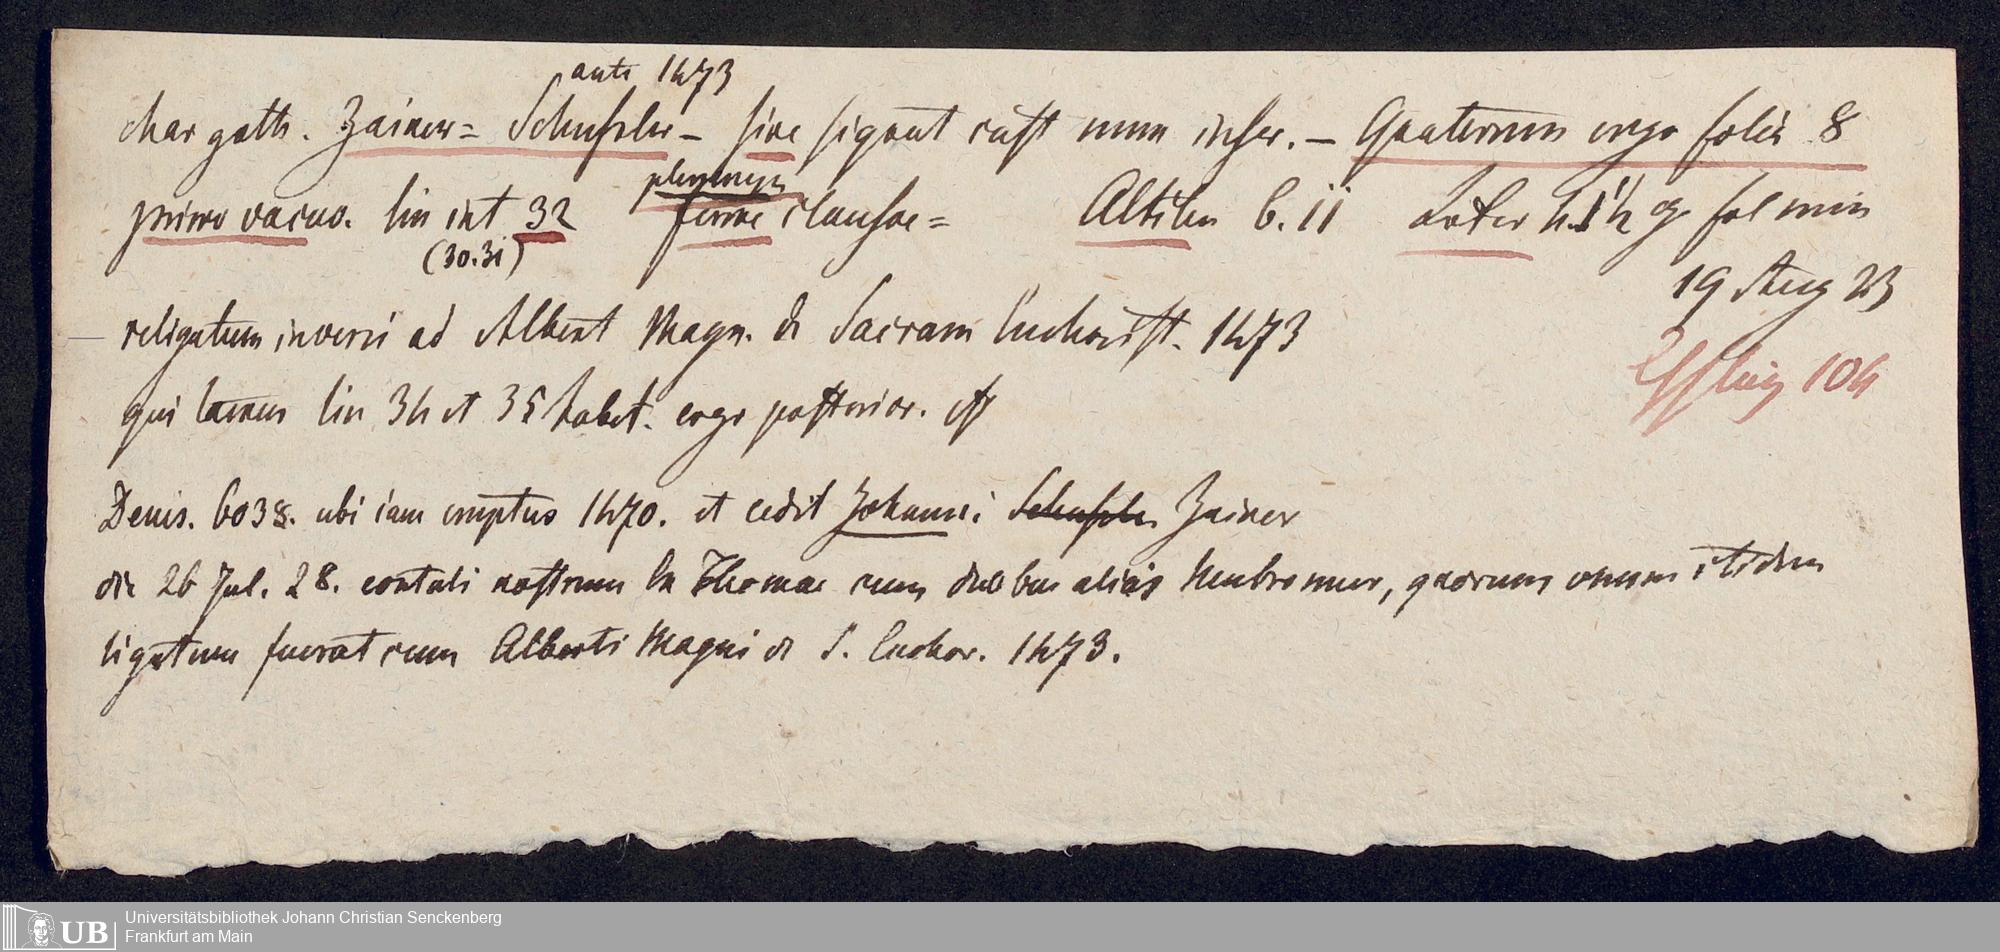 ante 1473
char goth. Zainer = Schussler – sine signat cust num inser. – Quaternus ergo foliis 8
primo vacuo. lin int 32 plerumque ferme clausae = Altitu 6. ii h. fol min
(30.31)
19 Aug 23
religatum inversi ad Albert Magn. de Sacram Eucharist. 1473
104
qui tamen lin 34 et 35 habet. ergo posterior.
Denis. 6038. ubi iam emptus 1470. et cedit Johanni Schussler Zainer
die 26 Jul. 28. contuli nostrum Ex Thomae cum duobus aliis Menbromur, quorum unum itidem
ligatum fuerat cum Alberti Magni de S. Euchar. 1473.
UB
Universitätsbibliothek Johann Christian Senckenberg
Frankfurt am Main